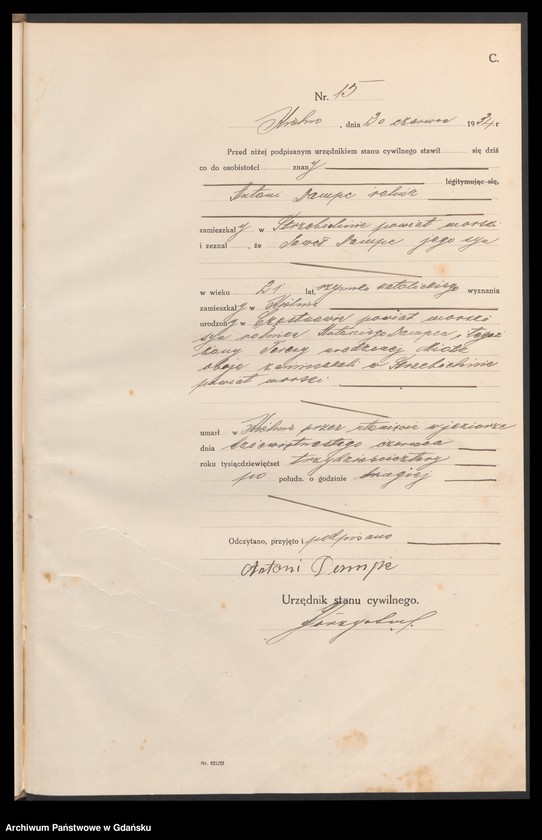 C.
Nr. 15
, dnia 20 czerwca 1934 r
Przed niżej podpisanym urzędnikiem stanu cywilnego stawił się dziś
co do osobistości znany
legitymując się,
Antoni Dampc rolnik
zamieszkały w Strzebielinie powiat morski
i zeznał , że Dampc jego syn
w wieku 21 lat, rzymsko katolickiego wyznania
zamieszkały w
urodzony w powiat morski
syn rolnika Antoniego Dampca i tegoż
żony urodzonej
oboje zamieszkali w Strzebielinie
powiat morski
umarł w przez utonięcie w jeziorze
dnia dziewiętnastego czerwca
roku tysiącdziewięćset trzydzieścicztery
po połudn. o godzinie drugiej
Odczytano, przyjęto i podpisano
Antoni Dempc
Urzędnik stanu cywilnego.
Nr. 621/32
Archiwum Państwowe w Gdańsku